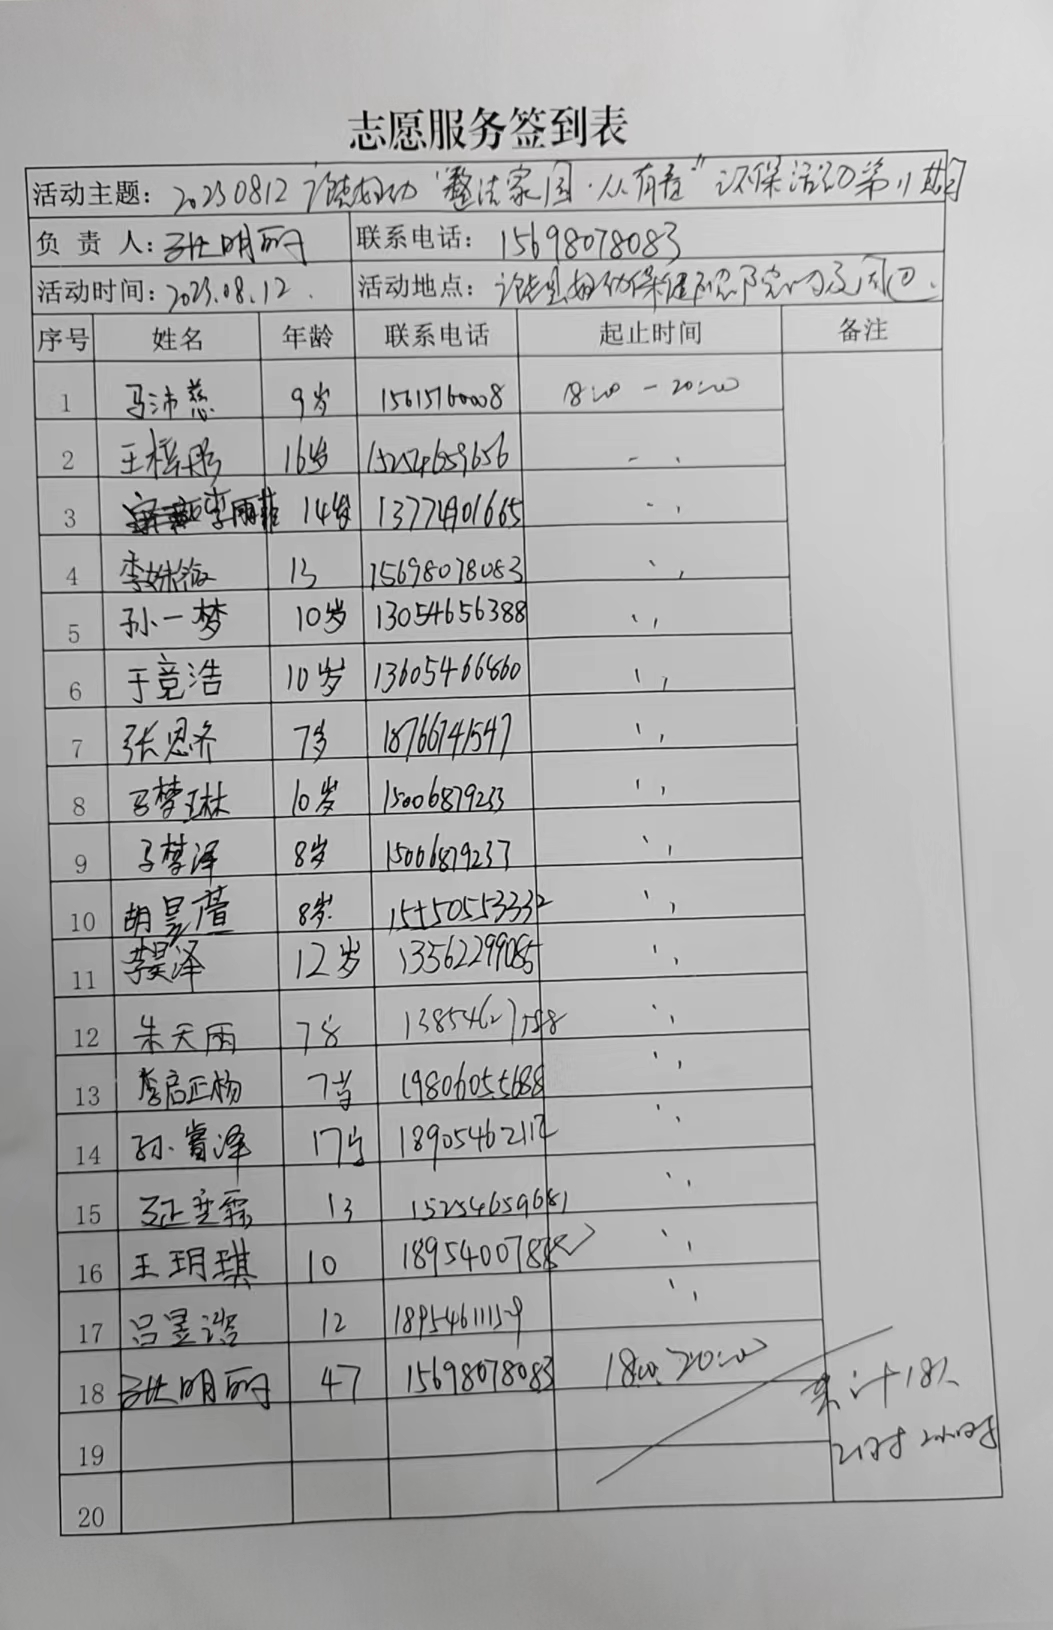 志愿服务签到表
活动主题: 20230812 "整洁家园·从有" 环保活动第11期
负责人: 张明丽 联系电话: 15698078083
活动时间: 2023.08.12. 活动地点: 妇幼保健院院内及周边.
序号 姓名 年龄 联系电话 起止时间 备注
1 马沛慈 9岁 15615760008 18:00 - 20:00
2 王梓彤 16岁 15254659656
3 李雨菲 14岁 13774901665
4 李姝 13 15698078083
5 孙一梦 10岁 13054656388
6 于竟浩 10岁 13605466860
7 张恩齐 7岁 18766741547
8 马梦琳 10岁 15006879233
9 马梦泽 8岁 15006879237
10 胡昱萱 8岁 15550553332
11 李昊泽 12岁 13562299085
12 朱天雨 7岁
13 李启正杨 7岁 19806055688
14 孙睿泽 17岁 18905462112
15 13 15254659681
16 王玥琪 10
17 吕昱 12
18 张明丽 47 15698078083 18:00 20:00 累计18人
19 2小时
20